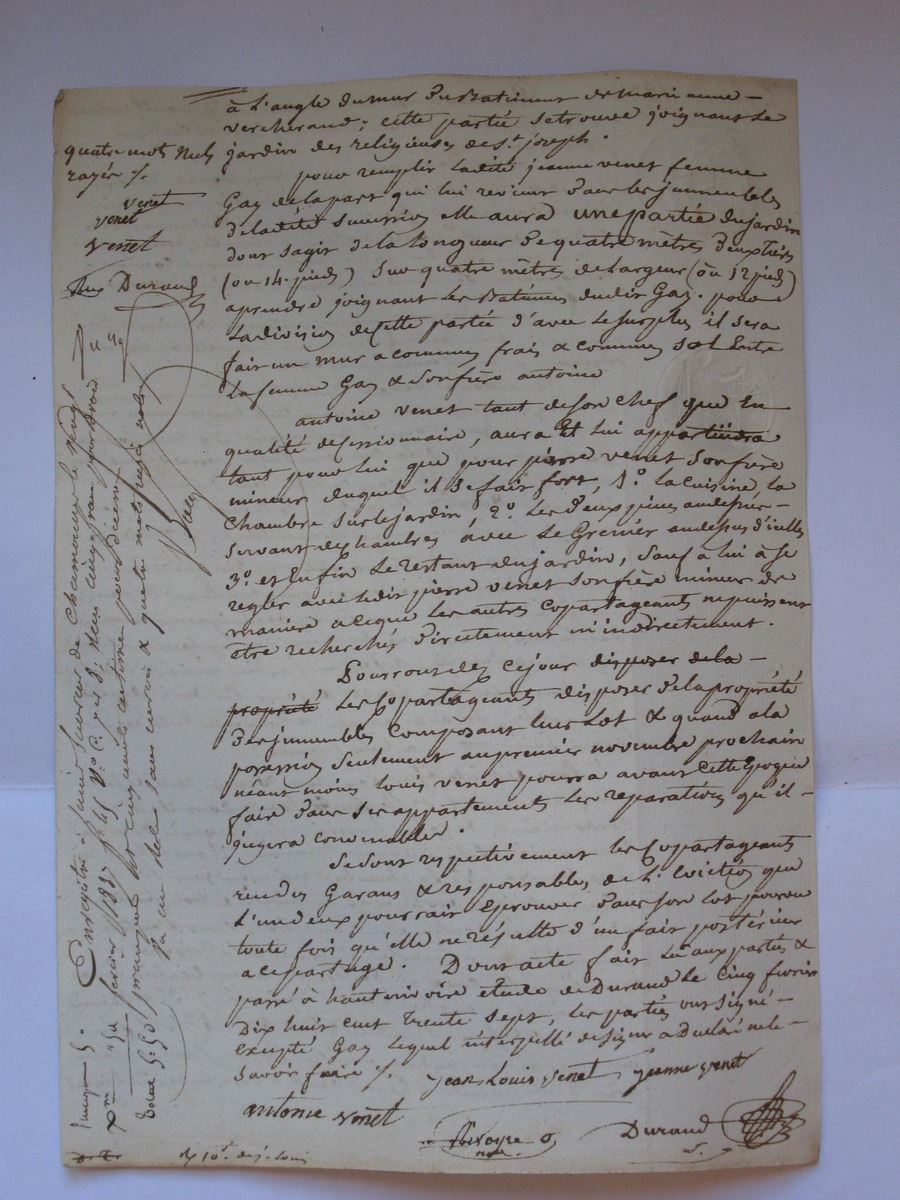 à L'angle du mur du Batiment de marie anne
vercherand ; cette partie se trouve joignant le
jardin des religieuses de St joseph.
pour remplir ladite jeanne venet femme
Gay de la part qui lui revient dans les immeubles
de ladite succession elle aura une partie du jardin
dont s'agit de la longueur de quatre mètres deux tiers
(ou 14. pieds) sur quatre mètres de Largeur (ou 12 pieds)
a prendre joignant les Batimens dudit Gay. pour
La division de cette partie d'avec le surplus il sera
fait un mur a communs frais & commun sol Entre
la femme Gay & son frère antoine
antoine venet tant de son chef que En
qualité de cessionnaire, aura Et lui appartiendra
tant pour lui que pour pierre venet son frère
mineur duquel il se fait fort, 1.º La cuisine, la
chambre sur le jardin, 2.º Les deux pièces au dessus
servant de chambres avec le Grenier au dessus d'icelles
3.º et Enfin le restant du jardin, sauf à lui à se
regler avec ledit pierre venet son frère mineur de
manière a ce que les autres copartageants ne puissent
être recherchés directement ni indirectement.
Pourront dès ce jour disposer de la
propriété les Copartageants disposer de la propriété
des immeubles composant leur Lot & quand a la
possession seulement au premier novembre prochain
néant moins louis venet pourra avant cette Epoque
faire dans ses appartements les reparations qu'il
jugera convenables.
Se sont respectivement les Copartageants
rendus Garans & responsables de L'Eviction que
L'un deux pourrait Eprouver dans son lot pourvu
toute fois qu'elle ne résulte d'un fait postérieur
a ce partage. Dont acte fait Lu aux parties &
passé à hauterivoire étude de Durand le cinq fevrier
Dix huit cent trente sept, les parties ont signé
Excepté Gay lequel interpellé de signer a Declaré ne le
savoir faire /.
jean Louis venet jeanne venet
antoine venet
Durand
quatre mots nuls
rayés /.
venet
venet
venet
Durand
Enregistré à Saint Laurent de Chamousset le
fevrier 1837 fº 45 Vº C.
cinquante centimes pour décime